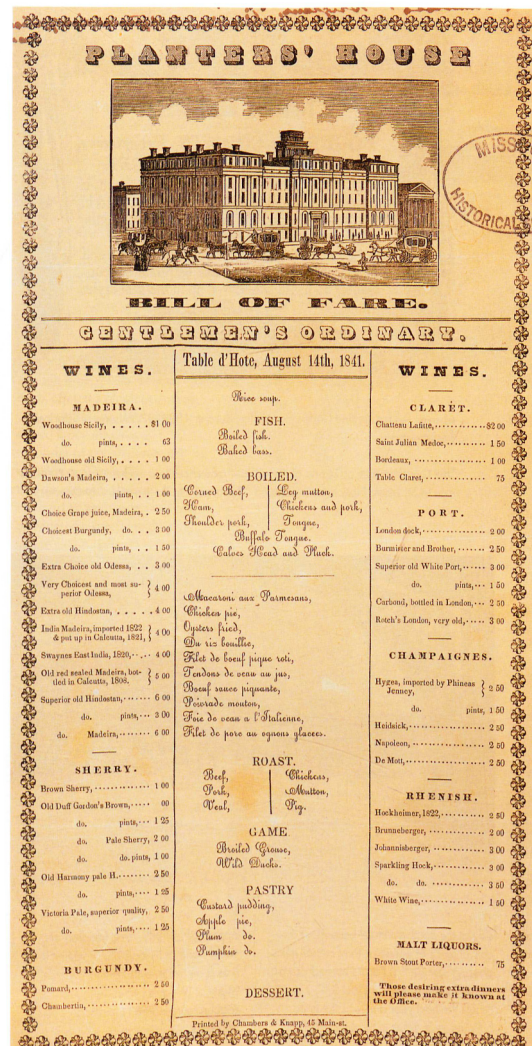 PLANTERS' HOUSE
MISS
HISTORICAL
BILL OF FARE.
GENTLEMEN'S ORDINARY.
WINES.
MADEIRA.
Woodhouse Sicily, . . . . . $1 00
do. pints, . . . . 63
Woodhouse old Sicily, . . . . 1 00
Dawson's Madeira, . . . . . 2 00
do. pints, . . . 1 00
Choice Grape juice, Madeira, . 2 50
Choicest Burgundy, do. . . . 3 00
do. pints, . . . 1 50
Extra Choice old Odessa, . . 3 00
Very Choicest and most su-
perior Odessa, } 4 00
Extra old Hindostan, . . . . . 4 00
India Madeira, imported 1822
& put up in Calcutta, 1821, } 4 00
Swaynes East India, 1820, . . . 4 00
Old red sealed Madeira, bot-
tled in Calcutta, 1808. } 5 00
Superior old Hindostan, . . . . 6 00
do. pints, . . . 3 00
do. Madeira, . . . . . 6 00
SHERRY.
Brown Sherry, . . . . . 1 00
Old Duff Gordon's Brown, . . . . 00
do. pints, . . . 1 25
do. Pale Sherry, 2 00
do. do. pints, 1 00
Old Harmony pale H. . . . . . 2 50
do. pints, . . . . 1 25
Victoria Pale, superior quality, 2 50
do. pints, . . . . 1 25
BURGUNDY.
Pomard, . . . . . 2 50
Chambertin, . . . . . 2 50
Table d'Hote, August 14th, 1841.
Rice soup.
FISH.
Boiled fish.
Baked bass.
BOILED.
Corned Beef, Leg mutton,
Ham, Chickens and pork,
Shoulder pork, Tongue,
Buffalo Tongue.
Calves Head and Pluck.
Macaroni aux Parmesans,
Chicken pie,
Oysters fried,
Du riz bouillie,
Filet de boeuf pique roti,
Tendons de veau au jus,
Boeuf sauce piquante,
Poivrade mouton,
Foie de veau a l'Italienne,
Filet de porc au ognons glacees.
ROAST.
Beef, Chickens,
Pork, Mutton,
Veal, Pig.
GAME
Broiled Grouse,
Wild Ducks.
PASTRY
Custard pudding,
Apple pie,
Plum do.
Pumpkin do.
DESSERT.
Printed by Chambers & Knapp, 45 Main-st.
WINES.
CLARET.
Chatteau Lafitte, . . . . . $2 00
Saint Julian Medoc, . . . . . 1 50
Bordeaux, . . . . . 1 00
Table Claret, . . . . . 75
PORT.
London dock, . . . . . 2 00
Burmister and Brother, . . . . . 2 50
Superior old White Port, . . . . . 3 00
do. pints, . . . 1 50
Carbond, bottled in London, . . . 2 50
Rotch's London, very old, . . . . 3 00
CHAMPAIGNES.
Hyges, imported by Phineas
Jenney, } 2 50
do. pints, 1 50
Heidsick, . . . . . 2 50
Napoleon, . . . . . 2 50
De Mott, . . . . . 2 50
RHENISH.
Hockheimer, 1822, . . . . . 2 50
Brunneberger, . . . . . 2 00
Johannisberger, . . . . . 3 00
Sparkling Hock, . . . . . 3 00
do. do. . . . . . 3 50
White Wine, . . . . . 1 50
MALT LIQUORS.
Brown Stout Porter, . . . . . 75
Those desiring extra dinners
will please make it known at
the Office.